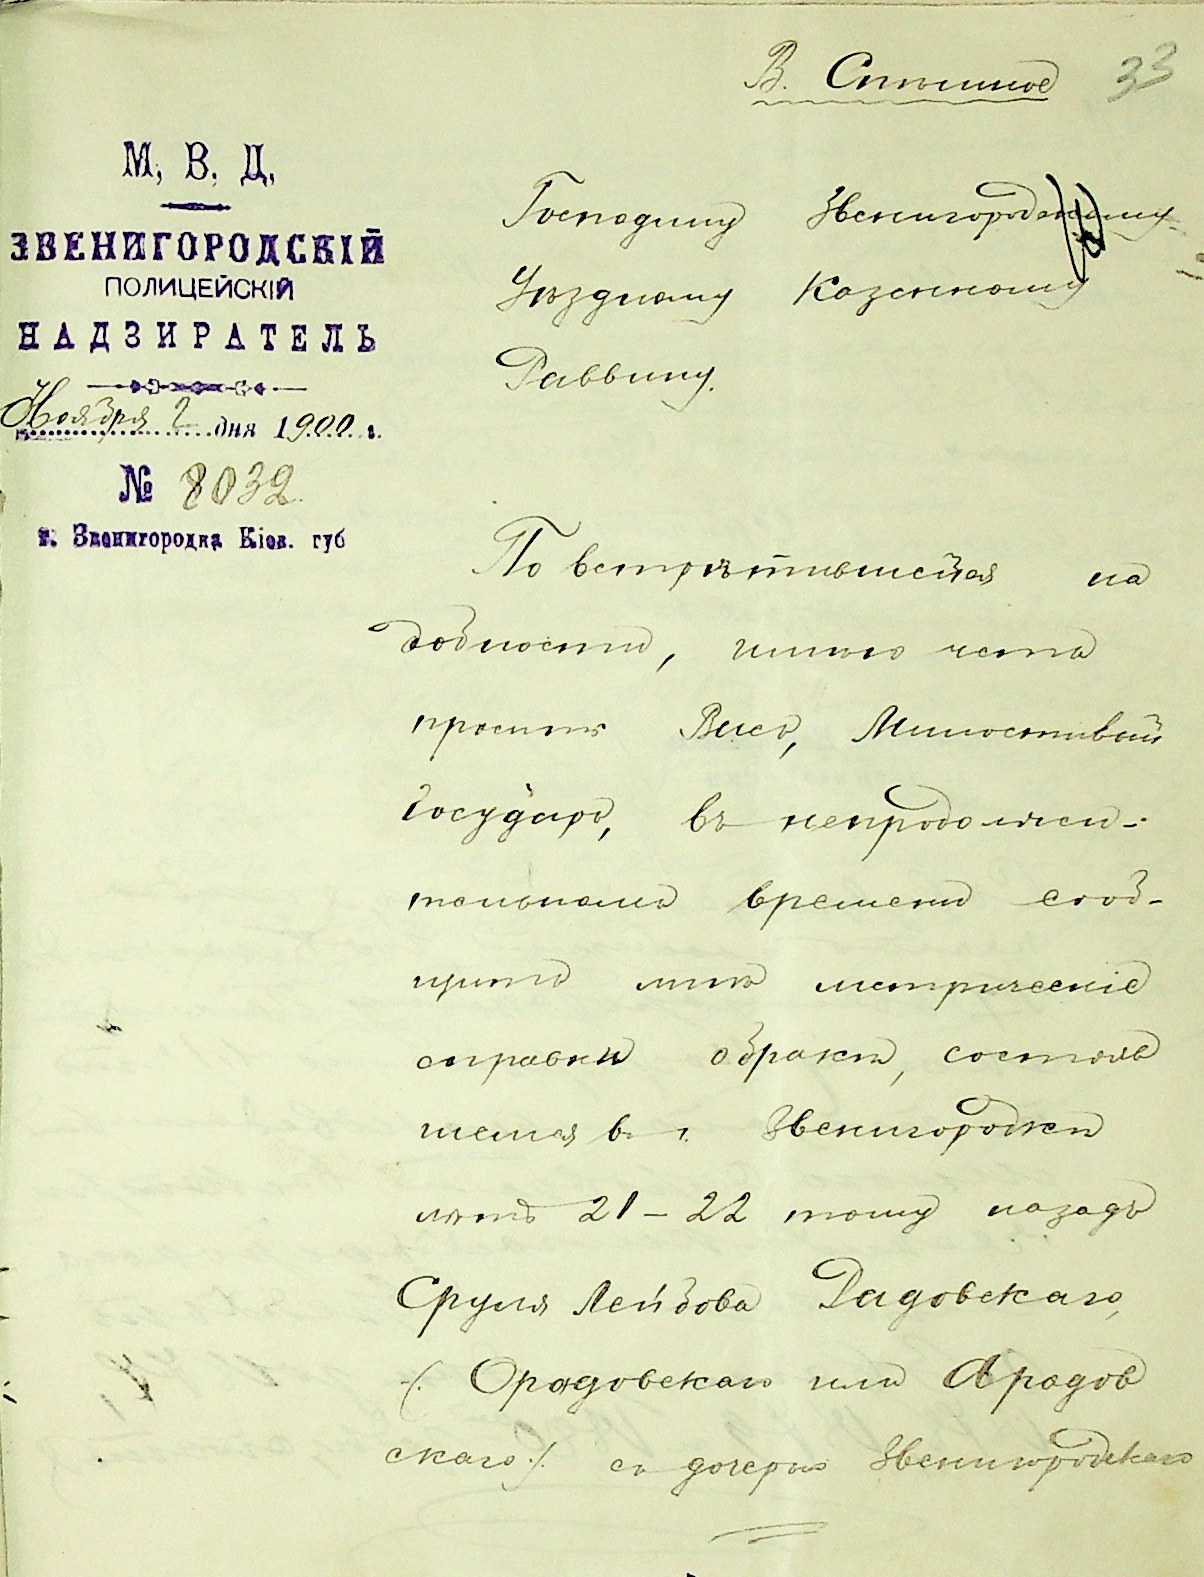 В. Спѣшное
33
М. В. Д.
ЗВЕНИГОРОДСКІЙ
ПОЛИЦЕЙСКІЙ
НАДЗИРАТЕЛЬ
Ноября 2 дня 1900 г.
№ 8032
г. Звенигородка Кіев. губ
Господину Звенигородскому
Уѣздному Казенному
Раввину.
По встрѣтившейся на
добности, имѣю честь
просить Васъ, Милостивый
Государь, въ непродолжи-
тельномъ времени сооб-
щить мнѣ метрическіе
справки о бракѣ, состояв
шемся въ г. Звенигородкѣ
лѣтъ 21–22 тому назадъ
Сруля Лейбова Радовскаго,
/. Орадовскаго или Арадов
скаго ./ съ дочерью Звенигородскаго